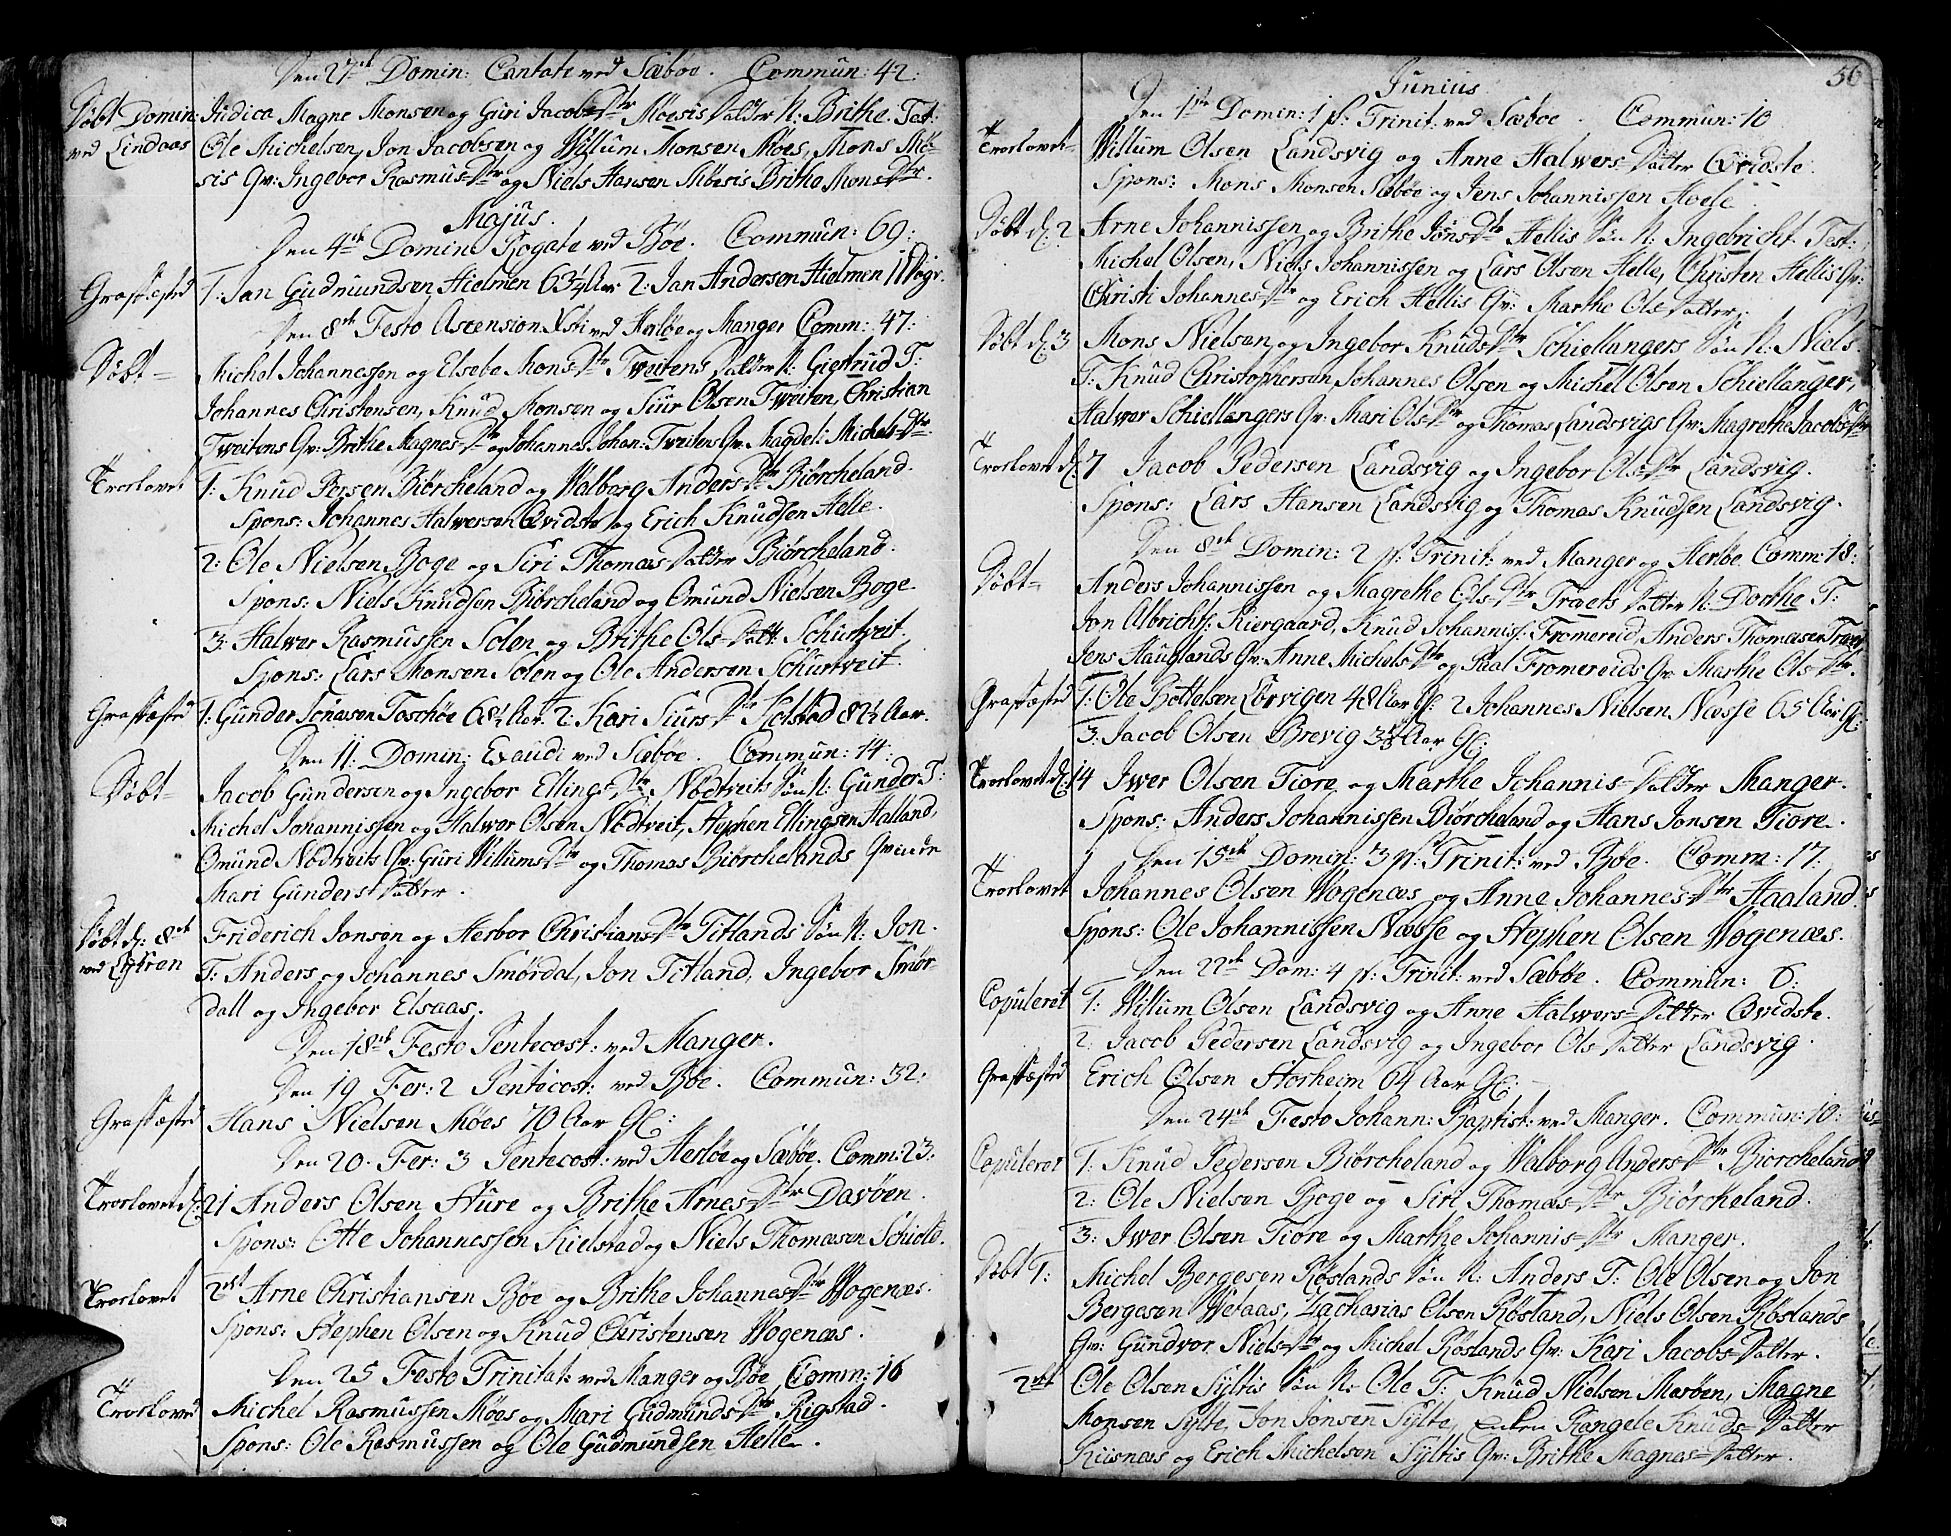 Den 27de Domin: Cantate ved Sæboe. Commun: 42:
Döbt Domin: Judica Magne Monsen og Guri Jacobs Dtr Möesis Datter N: Brithe. Test:
ved Lindaas Ole Michelsen, Jon Jacobsen og Willum Monsen Möes, Mons Mö-
sis Qv: Ingebor Rasmus Dtr og Niels Hansen Möesis Brithe Mons Dtr.
Majus.
Den 4de Domin Rogate ved Böe. Commun: 69:
Grafæsted 1: Jan Gudmundsen Hielmen 63½ Aar 2: Jan Andersen Hielmen 11 Dage.
Den 8de Festo Ascension Xsti ved Herlöe og Manger Comm: 47:
Döbt Michel Johannessen og Elsebe Mons Dtr Tweitens Datter N: Giertrud T:
Johannes Christensen, Knud Monsen og Siur Olsen Tweiten, Christian
Tweitens Qv: Brithe Magnes Dtr og Johannes Johan: Tweitens Qv. Magdel: Michels Dtr.
Troelovet 1: Knud Persen Biörcheland og Walborg Anders Dtr Biörcheland.
Spons: Johannes Halwersen Qvidste og Erich Knudsen Helle.
2: Ole Nielsen Boge og Siri Thomæs Datter Biörcheland.
Spons: Niels Knudsen Biörcheland og Omund Nielsen Boge
3: Halwer Rasmussen Solen og Brithe Ols Datt: Schurtveit.
Spons: Lars Monsen Solen og Ole Andersen Schurtveit.
Grafæsted 1: Gunder Jonæsen Toschöe 68½ Aar. 2: Kari Siurs Dtr Kolstad 82½ Aar.
Den 11: Domin: Exaudi ved Sæböe. Commun: 14:
Döbt Jacob Gundersen og Ingebor Ellings Dtr Nödtveits Sön N: Gunder T:
Michel Johannissen og Halwor Olsen Nödtveit, Stephen Ellingsen Halland,
Omund Nödtveits Qv: Guri Willums Dtr og Thomas Biörchelands Qvinde
Mari Gunders Datter.
Döbt d: 8de Friderich Jonsen og Herbor Christians Dtr Titlands Sön N: Jon.
ved T: Anders og Johannes Smördal, Jon Titland, Ingebor Smör-
dall og Ingebor Elsaas.
Den 18de Festo Pentecost: ved Manger.
Den 19 Fer: 2 Pentecost: ved Böe. Commun: 32:
Grafæsted Hans Nielsen Möes 70 Aar Gl:
Den 20. Fer: 3 Pentecost: ved Herlöe og Sæböe. Comm: 23:
Troelovet d: 21 Anders Olsen Hure og Brithe Arnes Dtr Davöen.
Spons: Otte Johannessen Kielstad og Niels Thomæsen Schiold.
Troelovet 2det Arne Christiansen Böe og Brithe Johannes Dtr Wogenæs.
Spons: Stephen Olsen og Knud Christensen Wogenæs.
Den 25 Festo Trinitat: ved Manger og Böe Comm: 16
Troelovet Michel Rasmussen Möes og Mari Gudmunds Dtr Rigstad.
Spons: Ole Rasmussen og Ole Gudmundsen Helle.
56
Junius.
Den 1ste Domin: 1 p: Trinit: ved Sæboe. Commun: 10
Troelovet Willum Olsen Landsvig og Anne Halwers Datter Qvidste.
Spons: Mons Monsen Sæböe og Jens Johannissen
Döbt d: 2 Arne Johannissen og Brithe Jons Dtr Hellis Sön N: Ingebricht Test:
Michel Olsen, Niels Johannissen og Lars Olsen Helle, Christen Hellis Qv:
Christi Johannes Dtr og Erich Hellis Qv: Marthe Ols Datter.
Döbt d: 3 Mons Nielsen og Ingebor Knuds Dtr Schiellangers Sön N: Niels
T: Knud Christophersen Johannes Olsen og Michel Olsen Schiellanger,
Halwer Schiellangers Qv: Mari Ols Dtr og Thomas Landsvigs Qv: Magrethe Jacobs Dtr
Troelovet d: 7 Jacob Pedersen Landsvig og Ingebor Ols Dtr Landsvig.
Spons: Lars Hansen Landsvig og Thomas Knudsen Landsvig.
Den 8de Domin: 2 p: Trinit: ved Manger og Herlöe Comm: 18:
Döbt Anders Johannissen og Magrethe Ols Dtr Traets Datter N: Dorthe T:
Jon Albrichts: Kiergaard, Knud Johannis: Fromereid, Anders Thomæsen Traet,
Jens Hauglands Qv: Anne Michels Dtr og Paal Fromereids Qv: Marthe Ols Dtr.
Grafæsted 1: Ole Bottelsen Lörvigen 48 Aar Gl: 2 Johannes Nielsen Næsse 65 Aar Gl:
3: Jacob Olsen Brevig Aar Gl:
Troelovet d: 14 Iwer Olsen Tiore og Marthe Johannis Datter Manger.
Spons: Anders Johannissen Biörcheland og Hans Jonsen Tiore.
Den 15de Domin: 3 p: Trinit: ved Böe. Comm: 17.
Troelovet Johannes Olsen Wogenæs og Anne Johannes Dtr Haaland.
Spons: Ole Johannissen Næsse og Stephen Olsen Wogenæs.
Den 22de Dom: 4 p: Trinit: ved Sæböe. Commun: 6:
Copuleret 1: Willum Olsen Landsvig og Anne Halwors Datter Qvidste.
2: Jacob Pedersen Landsvig og Ingebor Ols Datter Landsvig.
Grafæsted Erich Olsen Storheim 64 Aar Gl:
Den 24de Festo Johann: Baptist: ved Manger. Commun: 10:
Copuleret 1: Knud Pedersen Biörcheland og Walborg Anders Dtr Biörcheland
2: Ole Nielsen Boge og Siri Thomæs Dtr Biörcheland.
3: Iwer Olsen Tiore og Marthe Johannis Dtr Manger.
Döbt 1: Michel Bergesen Röslands Sön N: Anders T: Ole Olsen og Jon
Bergesen Wetaas, Zacharias Olsen Rösland, Niels Olsen Röslands
Qv: Gundvor Niels Dtr og Michel Röslands Qv: Kari Jacobs Datter.
2det Ole Olsen Syltis Sön N: Ole T: Knud Nielsen Maröen, Magne
Monsen Sylte, Jon Jonsen Sylte, Rangele Knuds Datter
Riisnæs og Erich Michelsen Syltis Qv: Brithe Magnæs Datter.